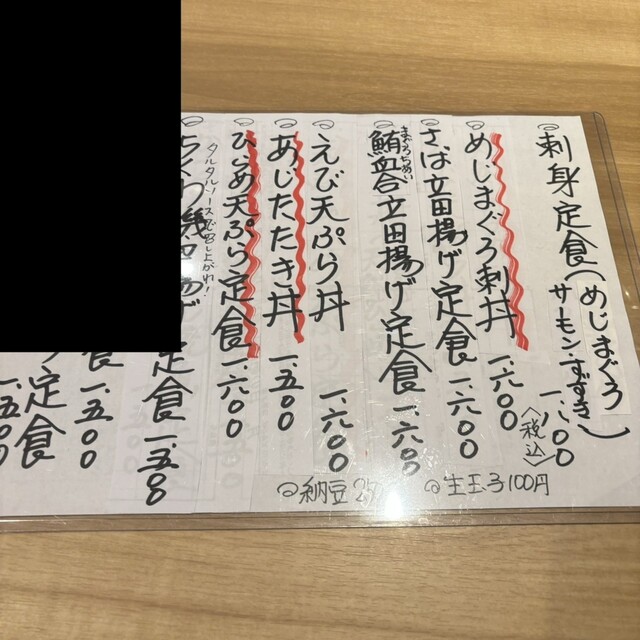 刺身定食(めじまぐろ
サーモン・すずき)
1.800
〈税込〉
めじまぐろ刺丼 1.600
さば立田揚げ定食 1.600
まぐろちあい
鮪血合立田揚げ定食 1.600
えび天ぷら丼 1.600
あじたたき丼 1.500
ひらめ天ぷら定食 1.600
タルタルソースで召し上がれ!
定食 1.500
食 1.500
定食 1.500
納豆
生玉子100円